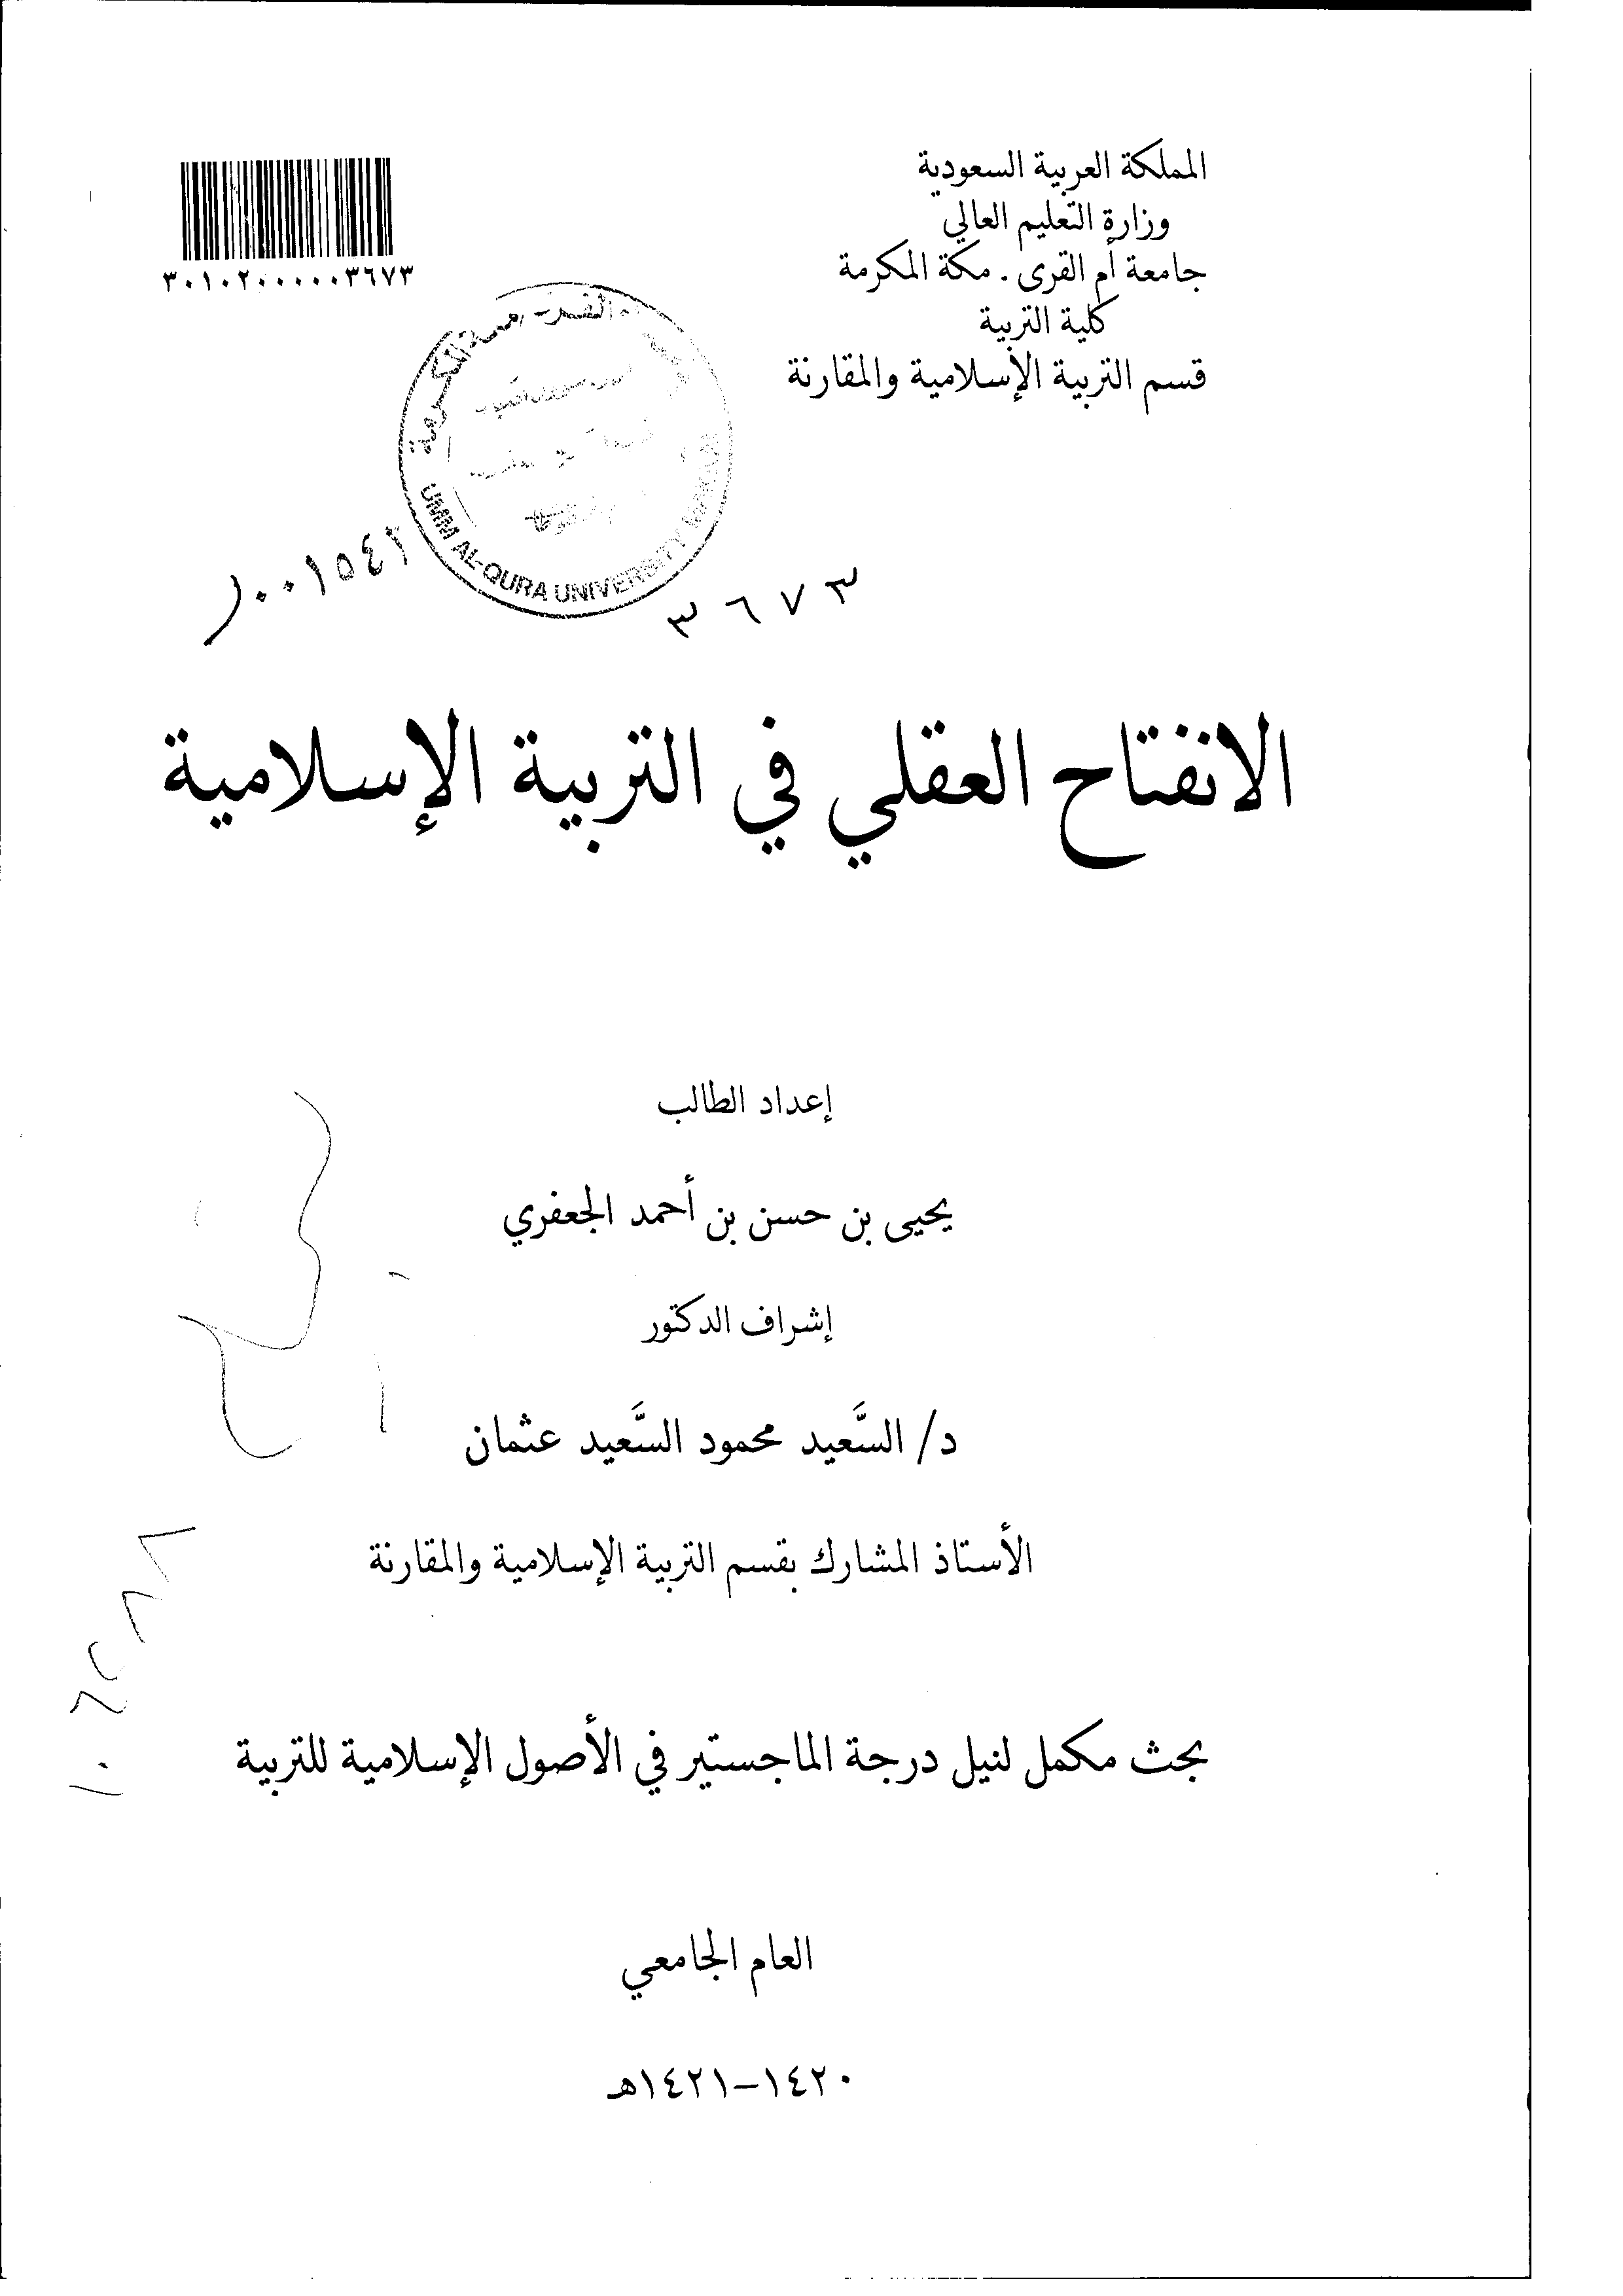 المملكة العربية السعودية
وزارة التعليم العالي
جامعة أم القرى . مكة المكرمة
كلية التربية
قسم التربية الإسلامية والمقارنة
٣٠١٠٢٠٠٠٠٠٠٣٦٧٣
UMM AL-QURA UNIVERSITY MAKKAH
٣٦٧٣
الانفتاح العقلي في التربية الإسلامية
إعداد الطالب
يحيى بن حسن بن أحمد الجعفري
إشراف الدكتور
د/ السَّعيد محمود السَّعيد عثمان
الأستاذ المشارك بقسم التربية الإسلامية والمقارنة
بحث مكمل لنيل درجة الماجستير في الأصول الإسلامية للتربية
العام الجامعي
١٤٢٠–١٤٢١هـ